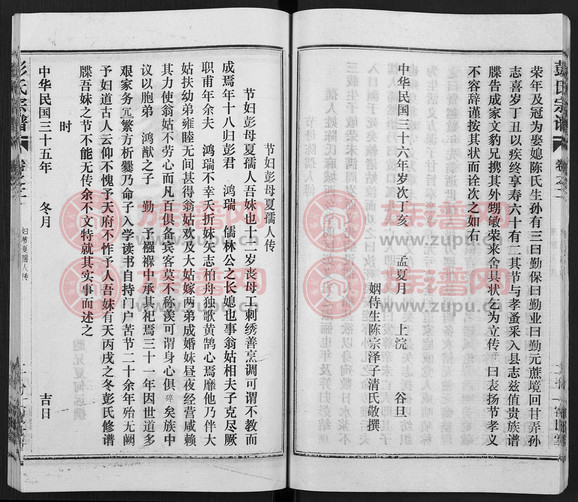 彭氏宗谱
卷之二
荣年及冠为娶媳陈氏生孙有三曰勤保曰勤业曰勤元蔗境回甘弄孙
志喜岁丁丑以疾终享寿六十有二其节与孝蚤采入县志兹值贵族谱
牒告成家文豹兄携其外甥敏荣来舍具状乞为立传 曰表扬节孝义
不容辞谨按其状而诠次之如右
中华民国三十六年岁次丁亥 孟夏月 上浣 谷旦
姻侍生陈宗泽子清氏敬撰
节妇彭母夏孺人传
节妇彭母夏孺人吾妹也十二岁丧母工刺绣善烹调可谓不教而
成焉年十八归彭君 鸿瑞 儒林公之长媳也事翁姑相夫子克尽厥
职甫年余夫 鸿瑞不幸夭折妹矢志柏舟独歌黄鹄心焉靡他乃伴大
姑扶幼弟雍睦无间甚得翁姑欢及大姑嫁两弟成婚妹昼夜经营咸赖
其力使翁姑不劳心而凡百俱备亲戚宾客莫不称羡可谓身心俱瘁矣族中
议以胞弟 鸿猷之子 勤 予襁褓中承其祀焉三十一年因世道多
艰家务冗繁方析爨乃命子入学读书自持门户苦节二十余年殆无阙
予妇道古人云仰不愧于天府不怍于人吾妹有焉天丙戌之冬彭氏修谱
牒吾妹之节不能无传余不文特就其实事而述之
时
中华民国三十五年 冬月 吉日
彭氏宗谱
卷之二
妇彭夏孺人传